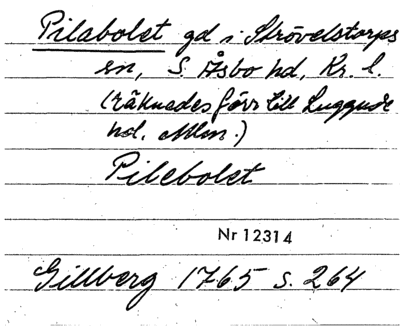 Pilabolet gd i Strövelstorps
sn, S. Åsbo hd, Kr. l.
(räknades förr till Luggude
hd. Mlm.)
Pilebolet
Nr 12314
Gillberg 1765 s. 264